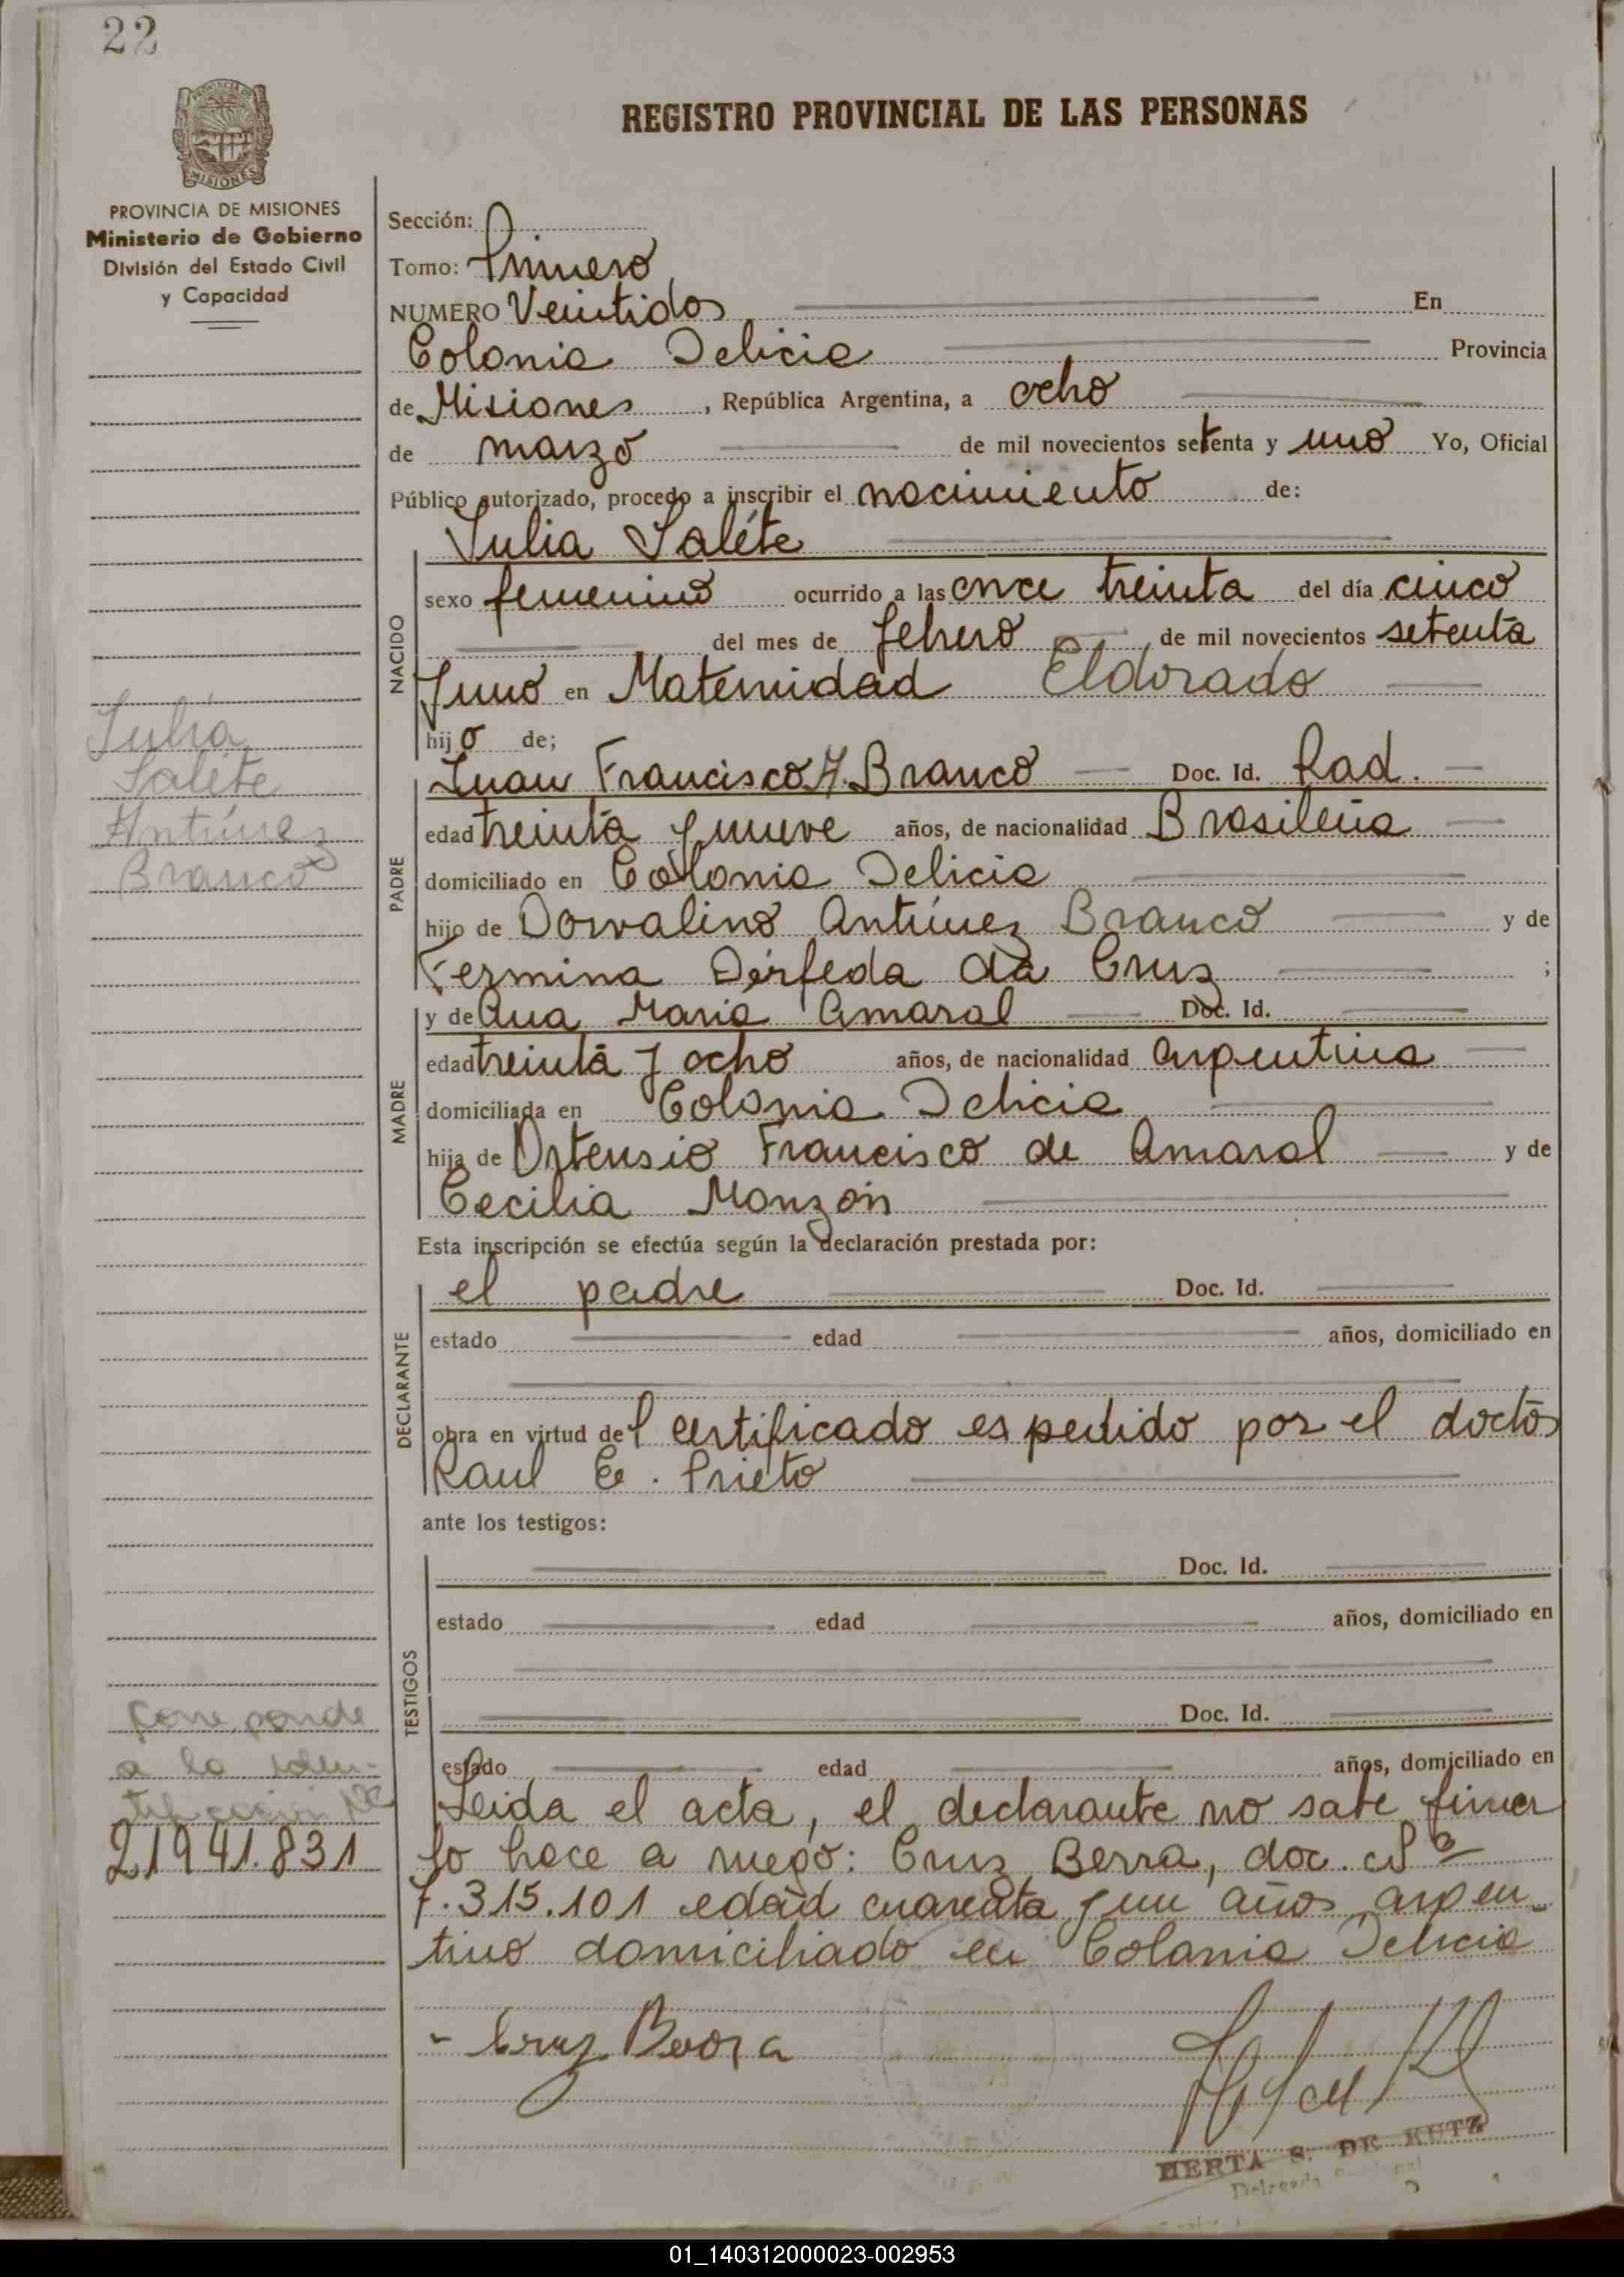 22
PROVINCIA DE MISIONES
REGISTRO PROVINCIAL DE LAS PERSONAS
PROVINCIA DE MISIONES
Ministerio de Gobierno
División del Estado Civil
y Capacidad
Sección:
Tomo: Primero
NUMERO Veintidos En
Colonia Delicia Provincia
de Misiones, República Argentina, a ocho
de marzo de mil novecientos setenta y uno Yo, Oficial
Público autorizado, procedo a inscribir el nacimiento de:
Julia Saléte
NACIDO
sexo femenino ocurrido a las once treinta del día cinco
del mes de febrero de mil novecientos setenta
y uno en Maternidad Eldorado
hij o de;
Juan Francisco A. Branco Doc. Id. Rad.
PADRE
edad treinta y nueve años, de nacionalidad Brasileña
domiciliado en Colonia Delicia
hijo de Dorvalino Antúnez Branco y de
Fermina Dérfeda da Cruz ;
y de Ana Maria Amaral Doc. Id.
MADRE
edad treinta y ocho años, de nacionalidad argentina
domiciliada en Colonia Delicia
hija de Ortensio Francisco de Amaral y de
Cecilia Monzón
Esta inscripción se efectúa según la declaración prestada por:
el padre Doc. Id.
DECLARANTE
estado edad años, domiciliado en
obra en virtud del certificado expedido por el doctor
Raul E. Prieto
ante los testigos:
Doc. Id.
TESTIGOS
estado edad años, domiciliado en
Doc. Id.
estado edad años, domiciliado en
Leida el acta, el declarante no sabe firmar
lo hace a ruego: Cruz Berra, doc.
7.315.101 edad cuarenta y un años argen-
tino domiciliado en Colonia Delicia
Cruz Beora
HERTA S. DE KUTZ
Delegada
Julia
Saléte
Antúnez
Branco
Corresponde
a la iden-
tificación Nº
21941.831
01_140312000023-002953